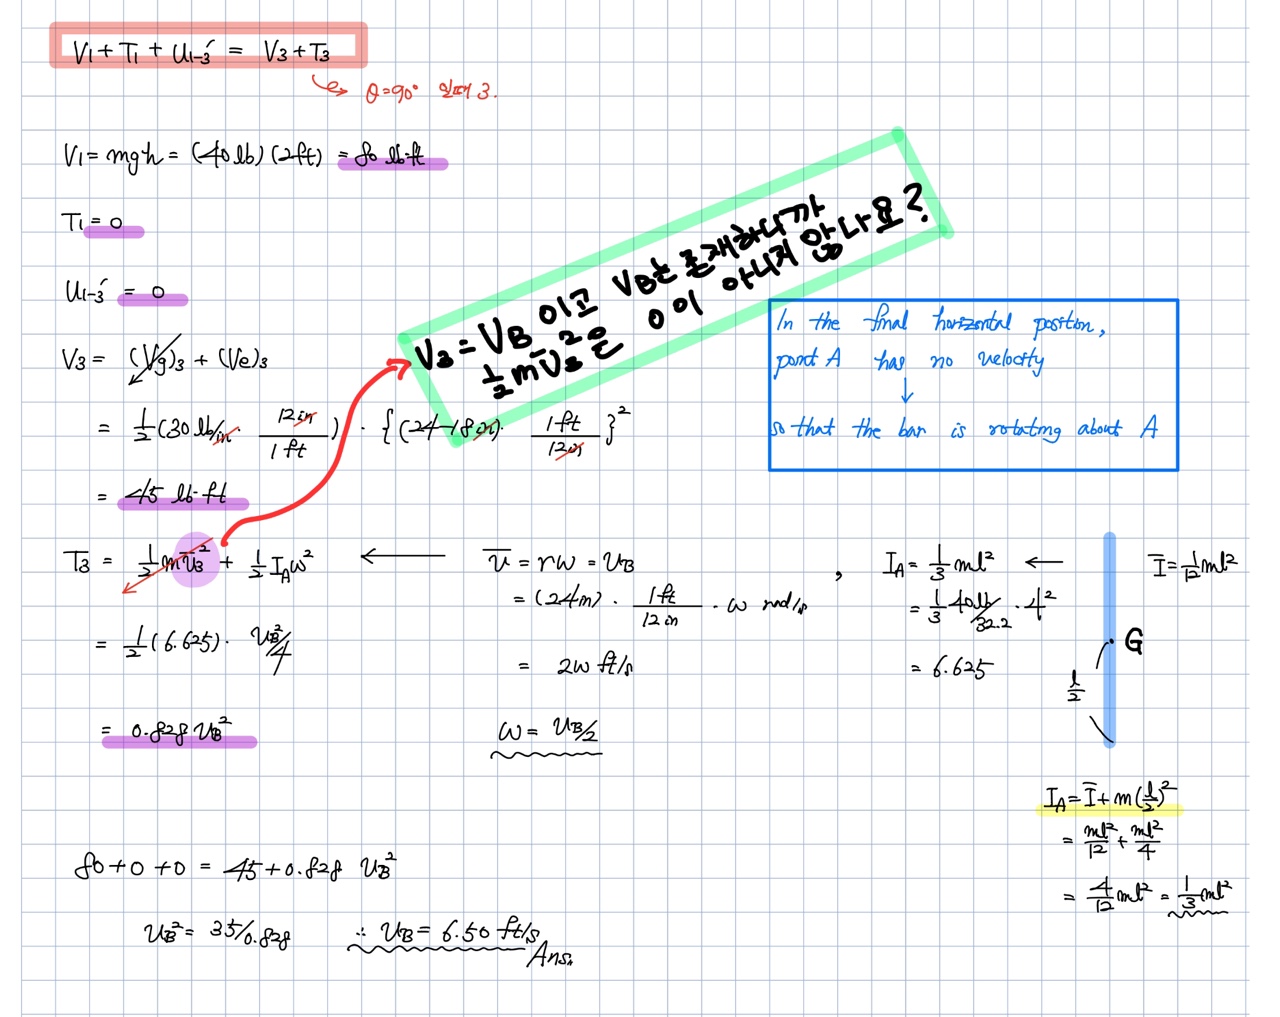 V₁ + T₁ + U₁₋₃′ = V₃ + T₃
θ=90° 일때 3.
V₁ = mgh = (40 lb)(2ft) = 80 lb·ft
T₁ = 0
U₁₋₃′ = 0
V₃ = (Vg)₃ + (Ve)₃
= 1/2 (30 lb/in · 12in/1ft) · {(24-18in) · 1ft/12in}²
= 45 lb·ft
V₃ = VB 이고 VB는 존재하니까
1/2 m V̄₃² 은 0이 아니지 않나요?
In the final horizontal position,
point A has no velocity
↓
so that the bar is rotating about A
T₃ = 1/2 m v̄₃² + 1/2 I_A ω² ← v̄ = rω = υB , I_A = 1/3 ml² ← Ī = 1/12 ml²
= (24in) · 1ft/12in · ω rad/s
= 1/3 40lb/32.2 · 4²
= 1/2 (6.625) · υB²/4
= 2ω ft/s
= 6.625
G
l/2
= 0.828 υB²
ω = υB/2
I_A = Ī + m(l/2)²
= ml²/12 + ml²/4
= 4/12 ml² = 1/3 ml²
80+0+0 = 45+0.828 υB²
υB² = 35/0.828 ∴ υB = 6.50 ft/s
Ans.